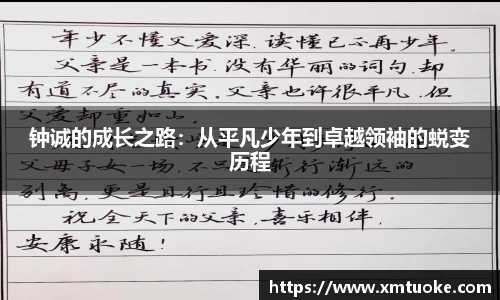 年少不懂父爱深,读懂已不再少年。
父亲是一本书,没有华丽的词句,却
有道不尽的真实。父亲也许很平凡,但
父爱却重如山。
钟诚的成长之路：从平凡少年到卓越领袖的蜕变
历程
父母子女一场,不
渐行渐远的
别离,更是且行且珍惜的修行。
祝全天下的父亲,喜乐相伴,
安康永随!
https://www.xmtuoke.com